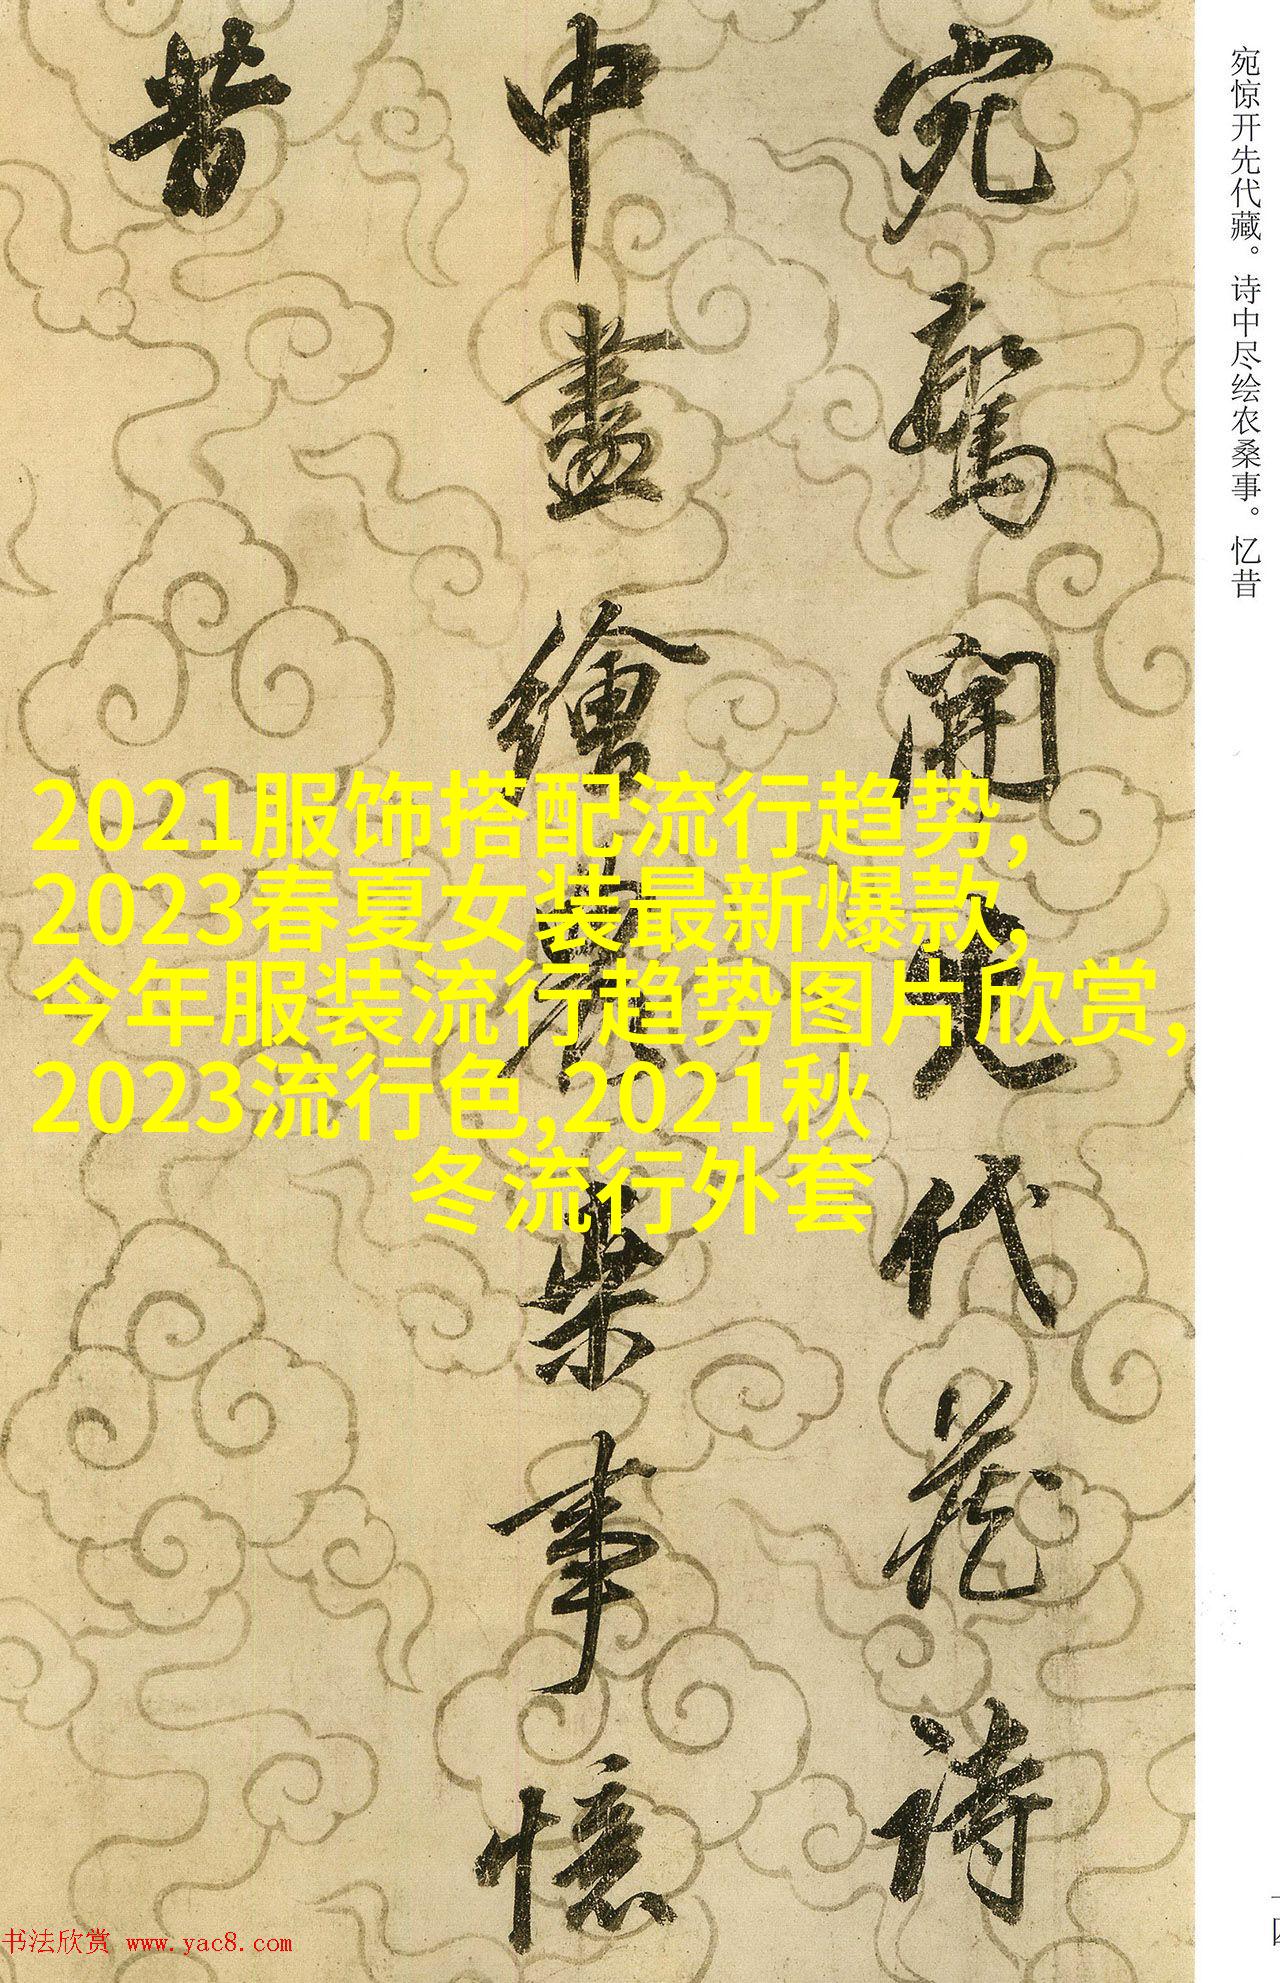 宛驚開先代藏詩
中盡繪農桒事憶
昔
宛惊开先代藏。诗中尽绘农桑事。忆昔
2021服饰搭配流行趋势,
2023春夏女装最新爆款,
今年服装流行趋势图片欣赏,
2023流行色,2021秋
冬流行外套
书法欣赏 www.yac8.com